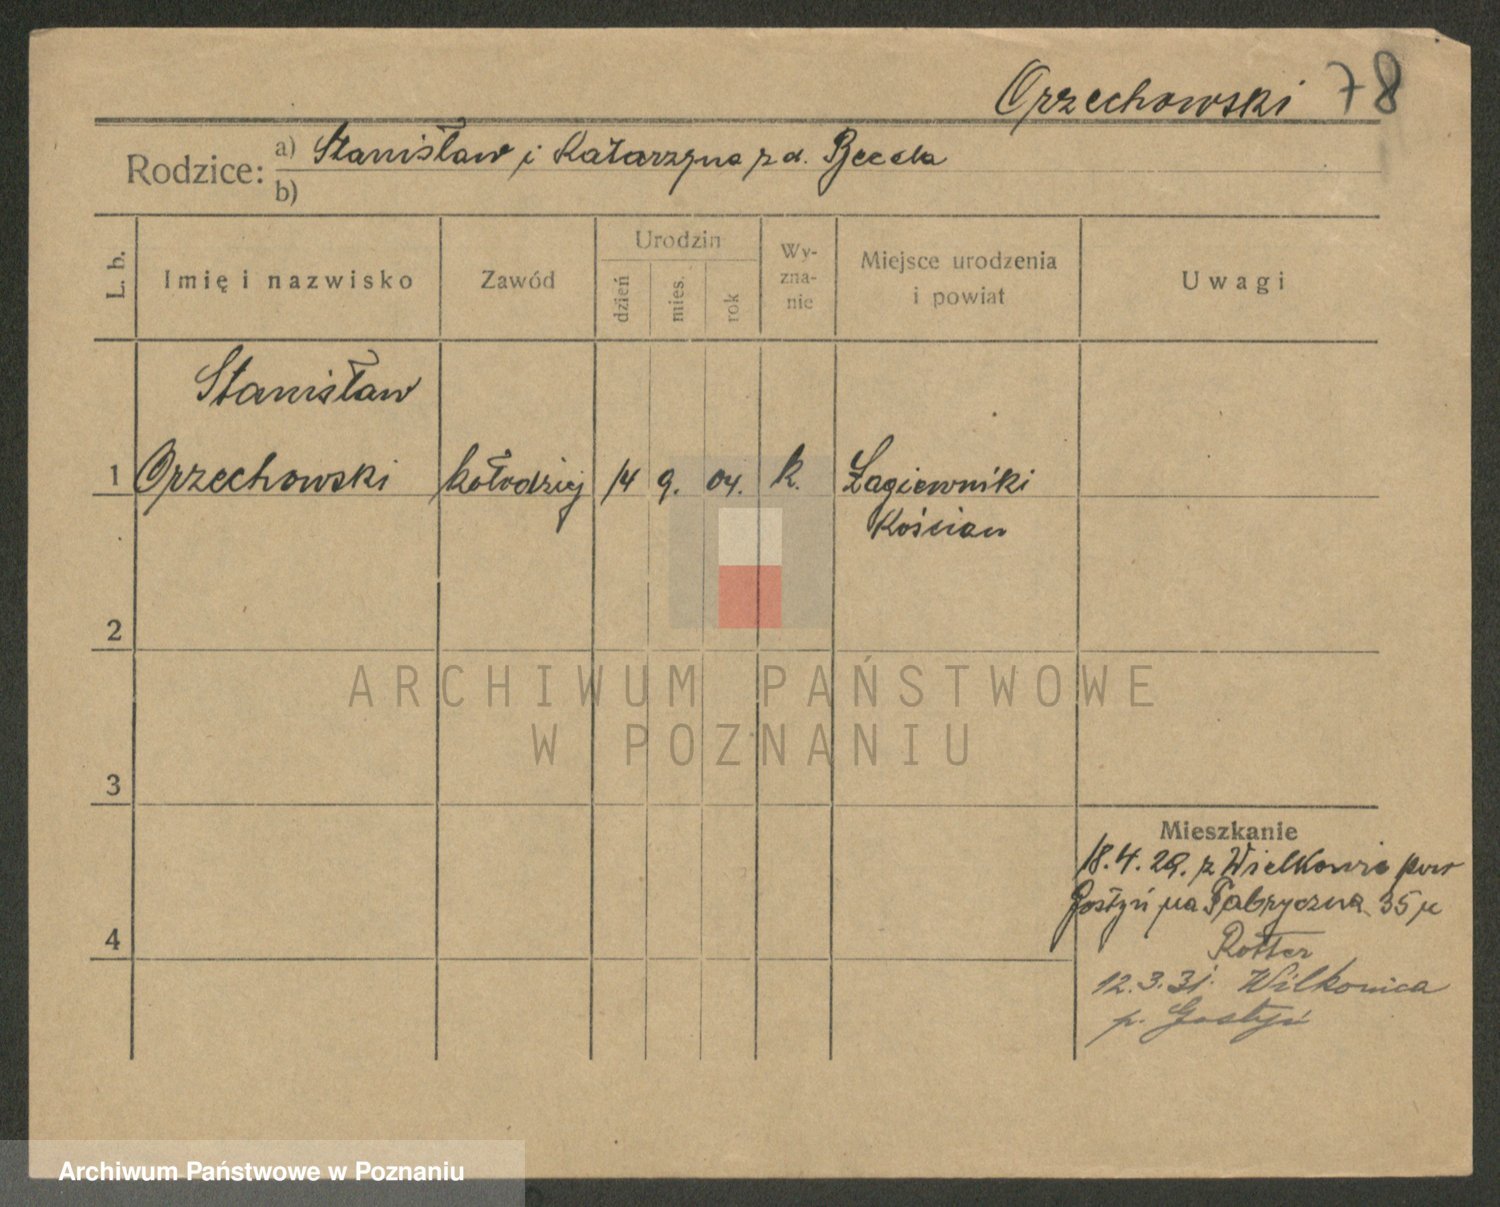 Orzechowski 78
Rodzice: a) Stanisław i Katarzyna z d.
b)
L. b. Imię i nazwisko Zawód Urodzin dzień mies. rok Wy-zna-nie Miejsce urodzenia i powiat Uwagi
Stanisław
1 Orzechowski kołodziej 14 9. 04. k. Łagiewniki
Kościan
2
ARCHIWUM PAŃSTWOWE
W POZNANIU
3
Mieszkanie
18.4.29. z Wielkowie pow
Gostyń na Fabryczna 35 u
4
Rotter
12.3.31. Wilkonica
p. Gostyń
Archiwum Państwowe w Poznaniu